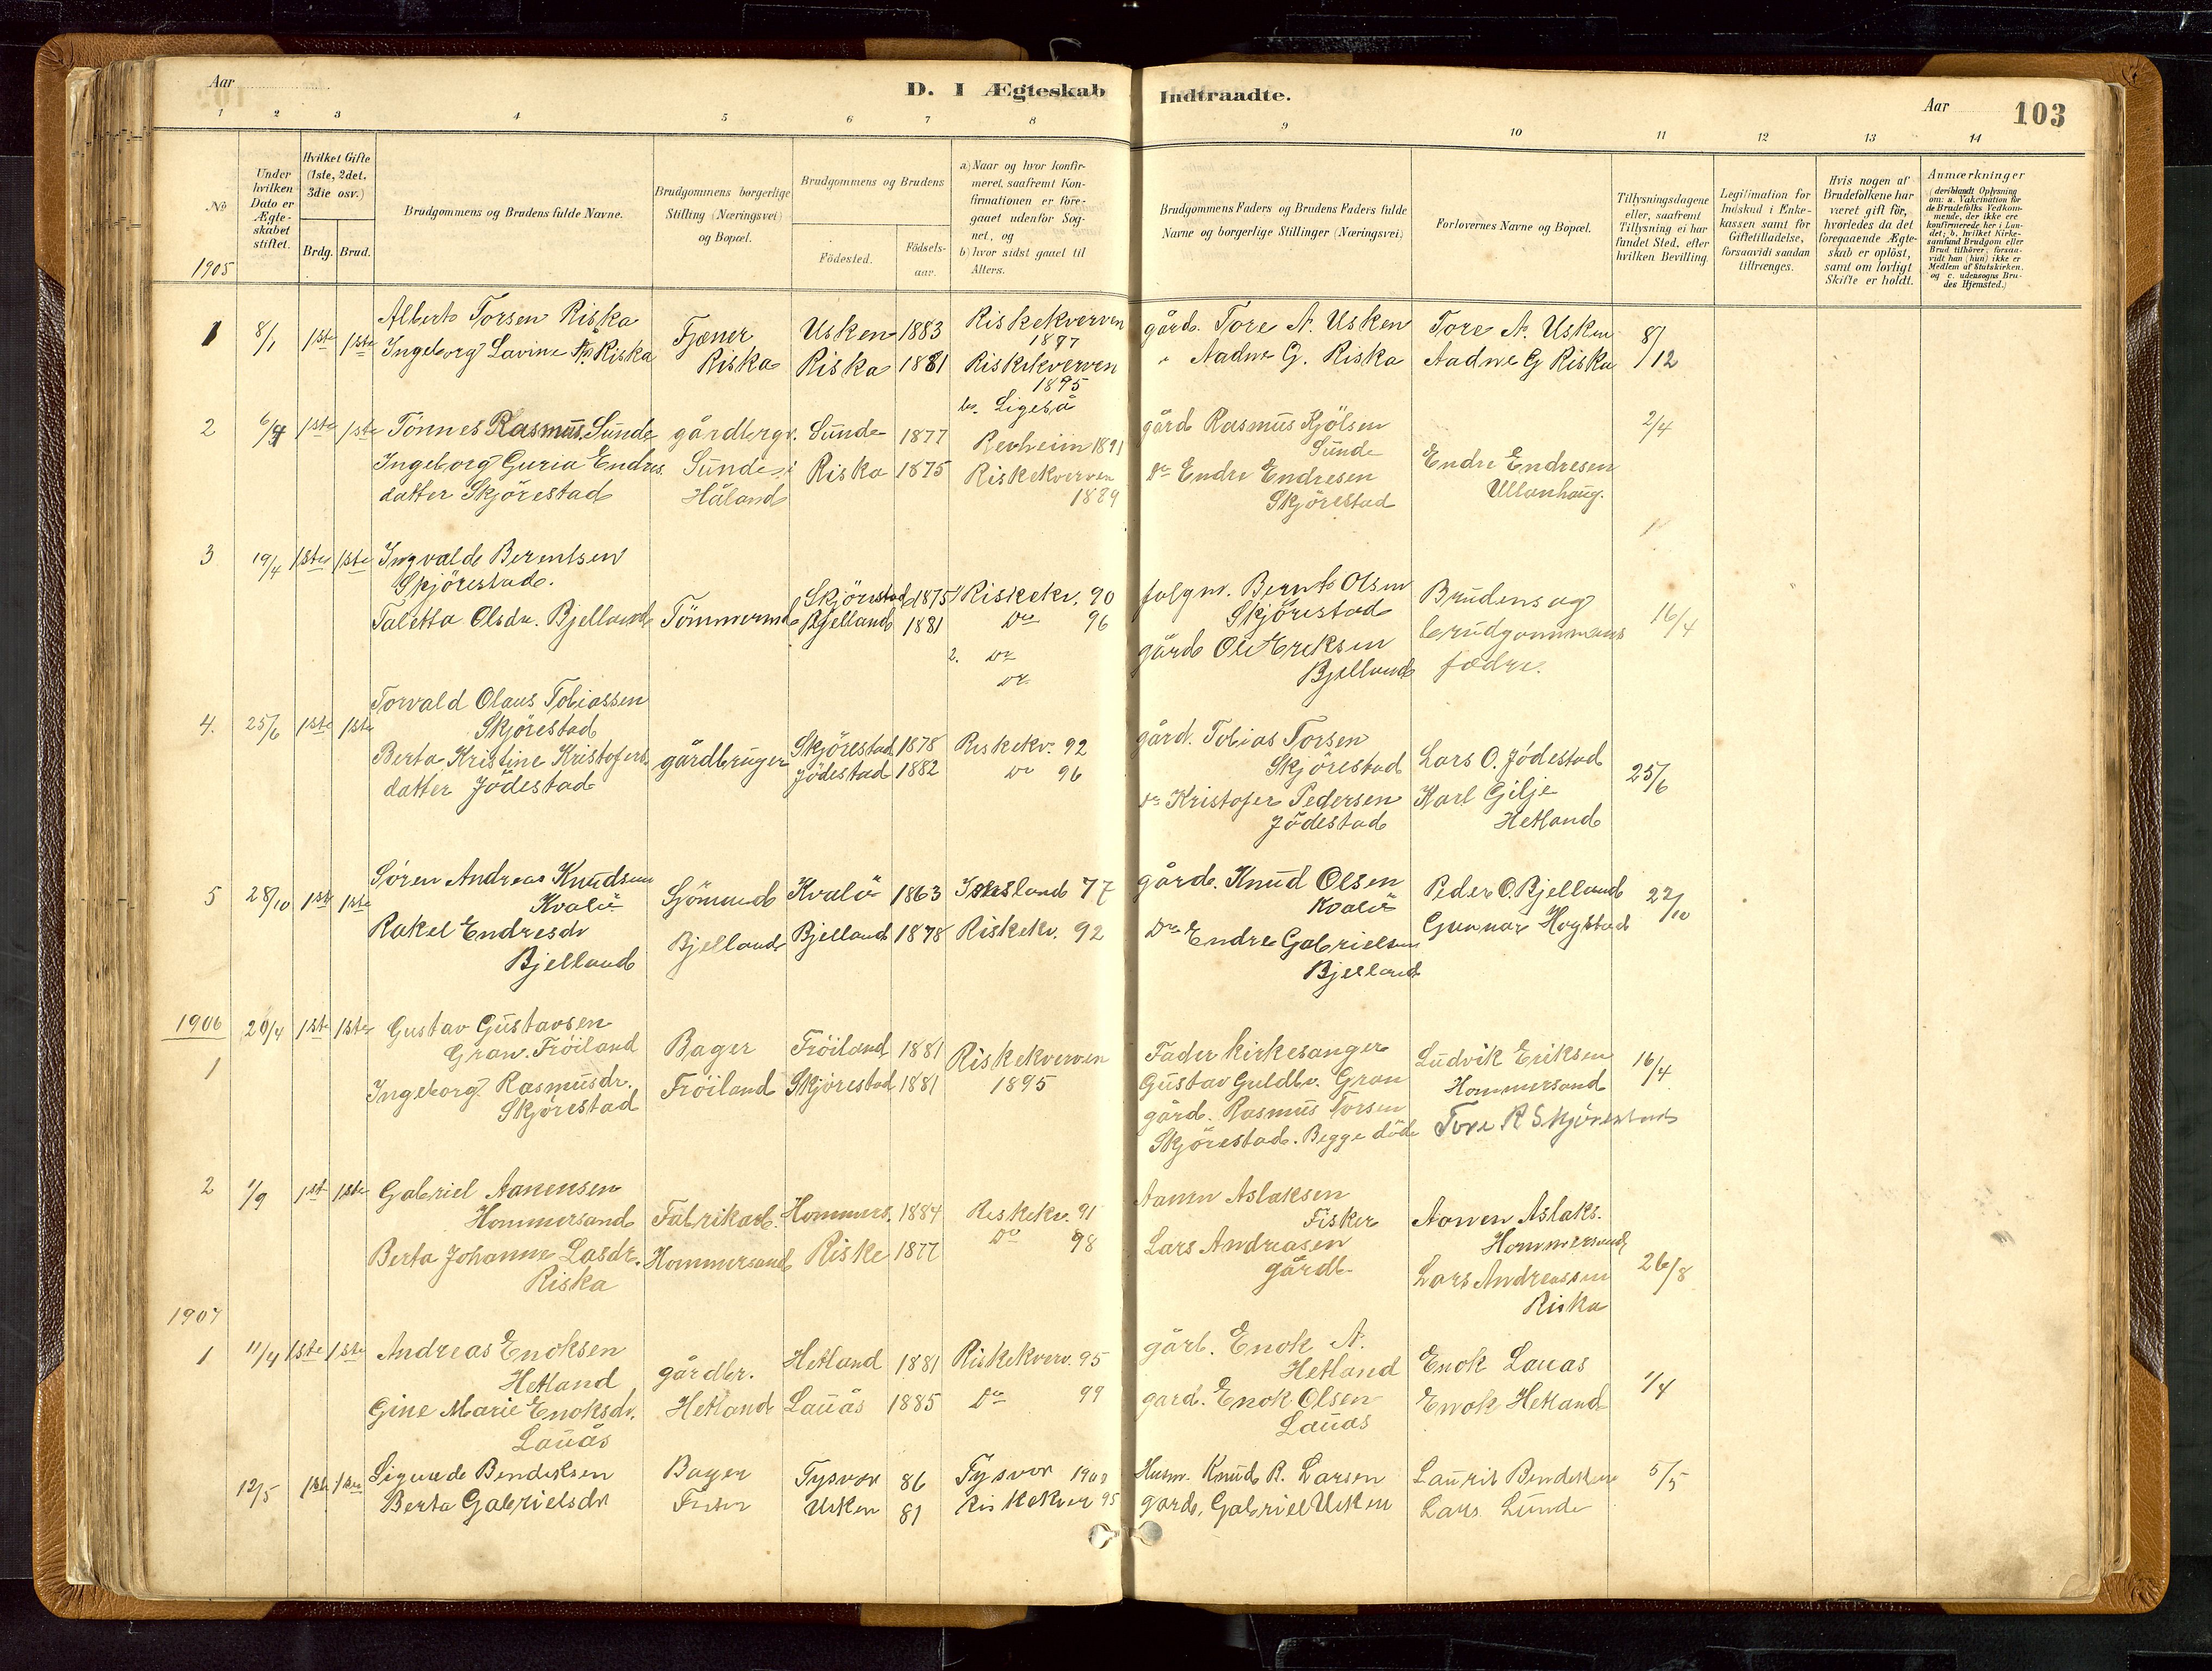 Aar
D. I Ægteskab Indtraadte.
Aar
103
1 2 3 4 5 6 7 8 9 10 11 12 13 14
No
Under hvilken Dato er Ægte-skabet stiftet.
Hvilket Gifte (1ste, 2det, 3die osv.)
Brdg. Brud.
Brudgommens og Brudens fulde Navne.
Brudgommens borgerlige Stilling (Næringsvei) og Bopæl.
Brudgommens og Brudens
Födested.
Födsels-aar.
a) Naar og hvor konfir-meret, saafremt Kon-firmationen er fore-gaaet udenfor Sog-net, og
b) hvor sidst gaaet til Alters.
Brudgommens Faders og Brudens Faders fulde Navne og borgerlige Stillinger (Næringsvei)
Forlovernes Navne og Bopæl.
Tillysningsdagene eller, saafremt Tillysning ei har fundet Sted, efter hvilken Bevilling
Legitimation for Indskud i Enke-kassen samt for Giftetilladelse, forsaavidt saadan tiltrænges.
Hvis nogen af Brudefolkene har været gift för, hvorledes da det foregaaende Ægte-skab er oplöst, samt om lovligt Skifte er holdt.
Anmærkninger
(deriblandt Oplysning om: a. Vaccination for de Brudefolks Vedkom-mende, der ikke ere konfirmerede her i Lan-det; b. hvilket Kirke-samfund Brudgom eller Brud tilhörer, forsaa-vidt han (hun) ikke er Medlem af Statskirken, og c. udensogns Bru-des Hjemsted.)
1905
1 8/1 1ste 1ste
Albert Torsen Riska
Ingeborg Lavine Riska
Tjener
Riska
Usken 1883
Riska 1881
Riskekverven
1897
Riskekverven
1895
gårdb. Tore A. Usken
Aadne G. Riska
Tore A. Usken
Aadne G Riska
8/12
2 6/4 1ste 1ste
Tönnes Rasmus. Sunde
Ingeborg Guria Endres
datter Skjörestad
gårdbrgr.
Sunde i
Håland
Sunde 1877
Riska 1875
b. Ligeså
Revheim 1891
Riskekverven
1889
gård Rasmus Kjölsen
Sunde
Do Endre Endresen
Skjörestad
Endre Endresen
Ullanhaug.
2/4
3 19/4 1ste 1ste
Ingvald Berentsen
Skjörestad.
Taletta Olsdr. Bjelland
Tömmermd
Skjörestad 1875
Bjelland 1881
Riskekv. 90
Do 96
2. Do
Do
folgm. Bernt Olsen
Skjörestad
gårdb Ole Eriksen
Bjelland
Brudens og
brudgommens
fædre.
16/4
4. 25/6 1ste 1ste
Torvald Olaus Tobiassen
Skjörestad
Berta Kristine Kristofers
datter Jödestad
gårdbruger
Skjörestad 1878
Jödestad 1882
Riskekv. 92
Do 96
gård. Tobias Torsen
Skjörestad
Do Kristofer Pedersen
Jödestad
Lars O. Jödestad
Karl Gilje
Hetland
25/6
5 28/10 1ste 1ste
Sören Andreas Knudsen
Kvalö
Rakel Endresdr
Bjelland
Sjömand
Bjelland
Kvalö 1863
Bjelland 1878
77
Riskekv. 92
gård. Knud Olsen
Kvalö
Do Endre Gabrielsen
Bjelland
Peder O. Bjelland
Gunnar Hogstad
22/10
1906
1 20/4 1ste 1ste
Gustav Gustavsen
Gran. Fröiland
Ingeborg Rasmusdr.
Skjörestad
Bager
Fröiland
Fröiland 1881
Skjörestad 1881
Riskekverven
1895
Fader Kirkesanger
Gustav Guldbr. Gran
gård. Rasmus Torsen
Skjörestad. Begge döde
Ludvik Eriksen
Hommersand
Tore R Skjörestad
16/4
2 1/9 1ste 1ste
Gabriel Aanensen
Hommersand
Berta Johanne Lasdr.
Riska
Fabrikarb.
Hommersand
Hommers. 1884
Riske 1877
Riskekv. 91
Do 98
Aanen Aslaksen
Fisker
Lars Andreasen
gårdb.
Aanen Aslaks.
Hommersand
Lars Andreassen
Riska
26/8
1907
1 11/4 1ste 1ste
Andreas Enoksen
Hetland
Gine Marie Enoksdr.
Lauås
gårdbr.
Hetland
Hetland 1881
Lauås 1885
Riskekverv. 95
Do 99
gårb. Enok A.
Hetland
gard. Enok Olsen
Lauas
Enok Lauas
Enok Hetland
1/4
12/5 1ste 1ste
Sigurd Bendiksen
Berta Gabrielsdr
Bager
Tysvor 86
Usken 81
Tysvor 1900
Riskekver 95
Husm. Knud R. Larsen
gardb. Gabriel Usken
Laurits Bendiksen
Lars Lunde
5/5